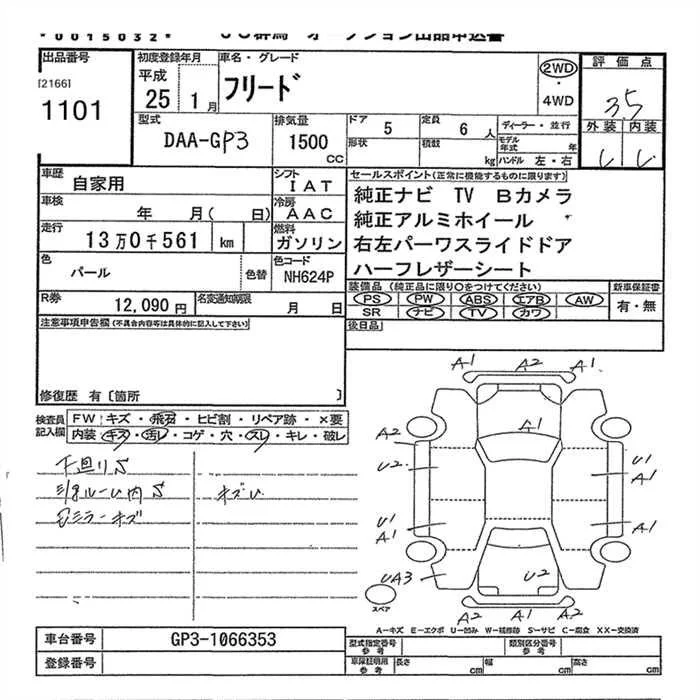 *0015032*
出品番号
[2166]
1101
初度登録年月
平成
25 1月
車名・グレード
フリード
2WD
・
4WD
評価点
3.5
外装 内装
型式
DAA-GP3
排気量
1500
CC
ドア
5
定員
6人
形状
積数
kg
ディーラー・並行
モデル
年式
年
ハンドル 左・右
車歴
自家用
シフト
IAT
車検
年 月( 日)
冷房
AAC
走行
13万0千561 km
燃料
ガソリン
色
パール
色替
色コード
NH624P
R券
12,090円
名変通知期限
月 日
セールスポイント(正常に機能するものに限ります)
純正ナビ TV Bカメラ
純正アルミホイール
右左パーワスライドドア
ハーフレザーシート
装備品 (純正品に限り○をつけてください)
PS PW ABS エアB AW
SR ナビ TV カワ
新車保証書
有・無
後日品
注意事項申告欄(不具合内容等は具体的に記入して下さい)
修復歴 有〔箇所 〕
検査員
記入欄
FW キズ・飛石・ヒビ割・リペア跡・×要
内装 キズ・汚レ・コゲ・穴・スレ・キレ・破レ
下廻りS
キズU
ミラーキズ
A1 A2 A1
A1
A2
U2
U1
A1
U1
A1
A1
UA3
U2
A2 A1 A2
スペア
A-キズ E-エクボ U-凹み W-補修跡 S-サビ C-腐食 XX-交換済
車台番号
GP3-1066353
登録番号
型式指定番号
参考
類別区分番号
参考
車庫証明用
参考
長さ
cm
幅
cm
高さ
cm